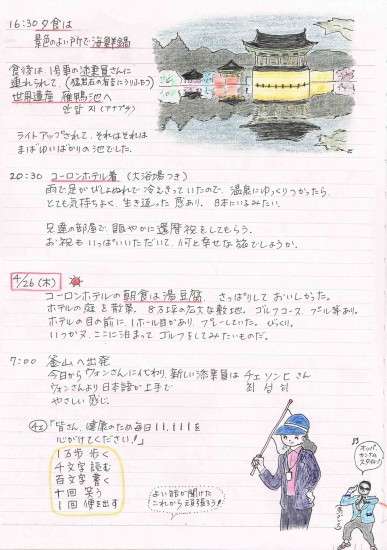 16:30 夕食は
景色のよい所で海鮮鍋
食後は、1号車の添乗員さんに
連れられて、(猛暑日の翌日にりふぁう)
世界遺産 雁鴨池へ
안압지 (アナプチ)
ライトアップされて、それはそれは
まばゆいばかりの池でした。
20:30 コーロンホテル着 (大浴場つき)
雨で足がびしょぬれで冷えきっていたので、温泉にゆっくりつかったら、
とても気持ちよく、生き返った感あり。日本にいるみたい。
兄達の部屋で、賑やかに還暦祝をしてもらう。
お祝もいっぱいいただいて、何と幸せな旅でしょうか。
4/26(木)
コーロンホテルの朝食は湯豆腐。さっぱりしておいしかった。
ホテルの庭を散策。8万坪の広大な敷地。ゴルフコース、プール等あり。
ホテルの目の前に、1ホール目があり、プレーしていた。びっくり。
いつか又、ここに泊まってゴルフをしてみたいものだ。
7:00 釜山へ出発
今日からウォンさんに代わり、新しい添乗員は チェ ソンヒ さん
ウォンさんより日本語が上手で 최 성희
やさしい感じ。
チェ 「皆さん、健康のため毎日11,111を
心がけてください!」
1万歩 歩く
千文字 読む
百文字 書く
十回 笑う
1回 便を出す
よい話が聞けた
これから頑張ろう!
オッパ、
カンナム
スタイル!